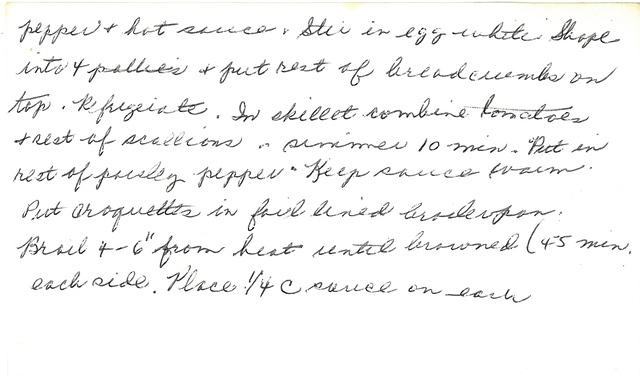 pepper + hot sauce. Stir in egg white. Shape
into 4 patties + put rest of breadcrumbs on
top. Refrigerate. In skillet combine tomatoes
+ rest of scallions - simmer 10 min. Put in
rest of parsley pepper - Keep sauce warm.
Put croquettes in foil lined broiler pan.
Broil 4-6" from heat until browned (4-5 min.
each side. Place 1/4 C sauce on each